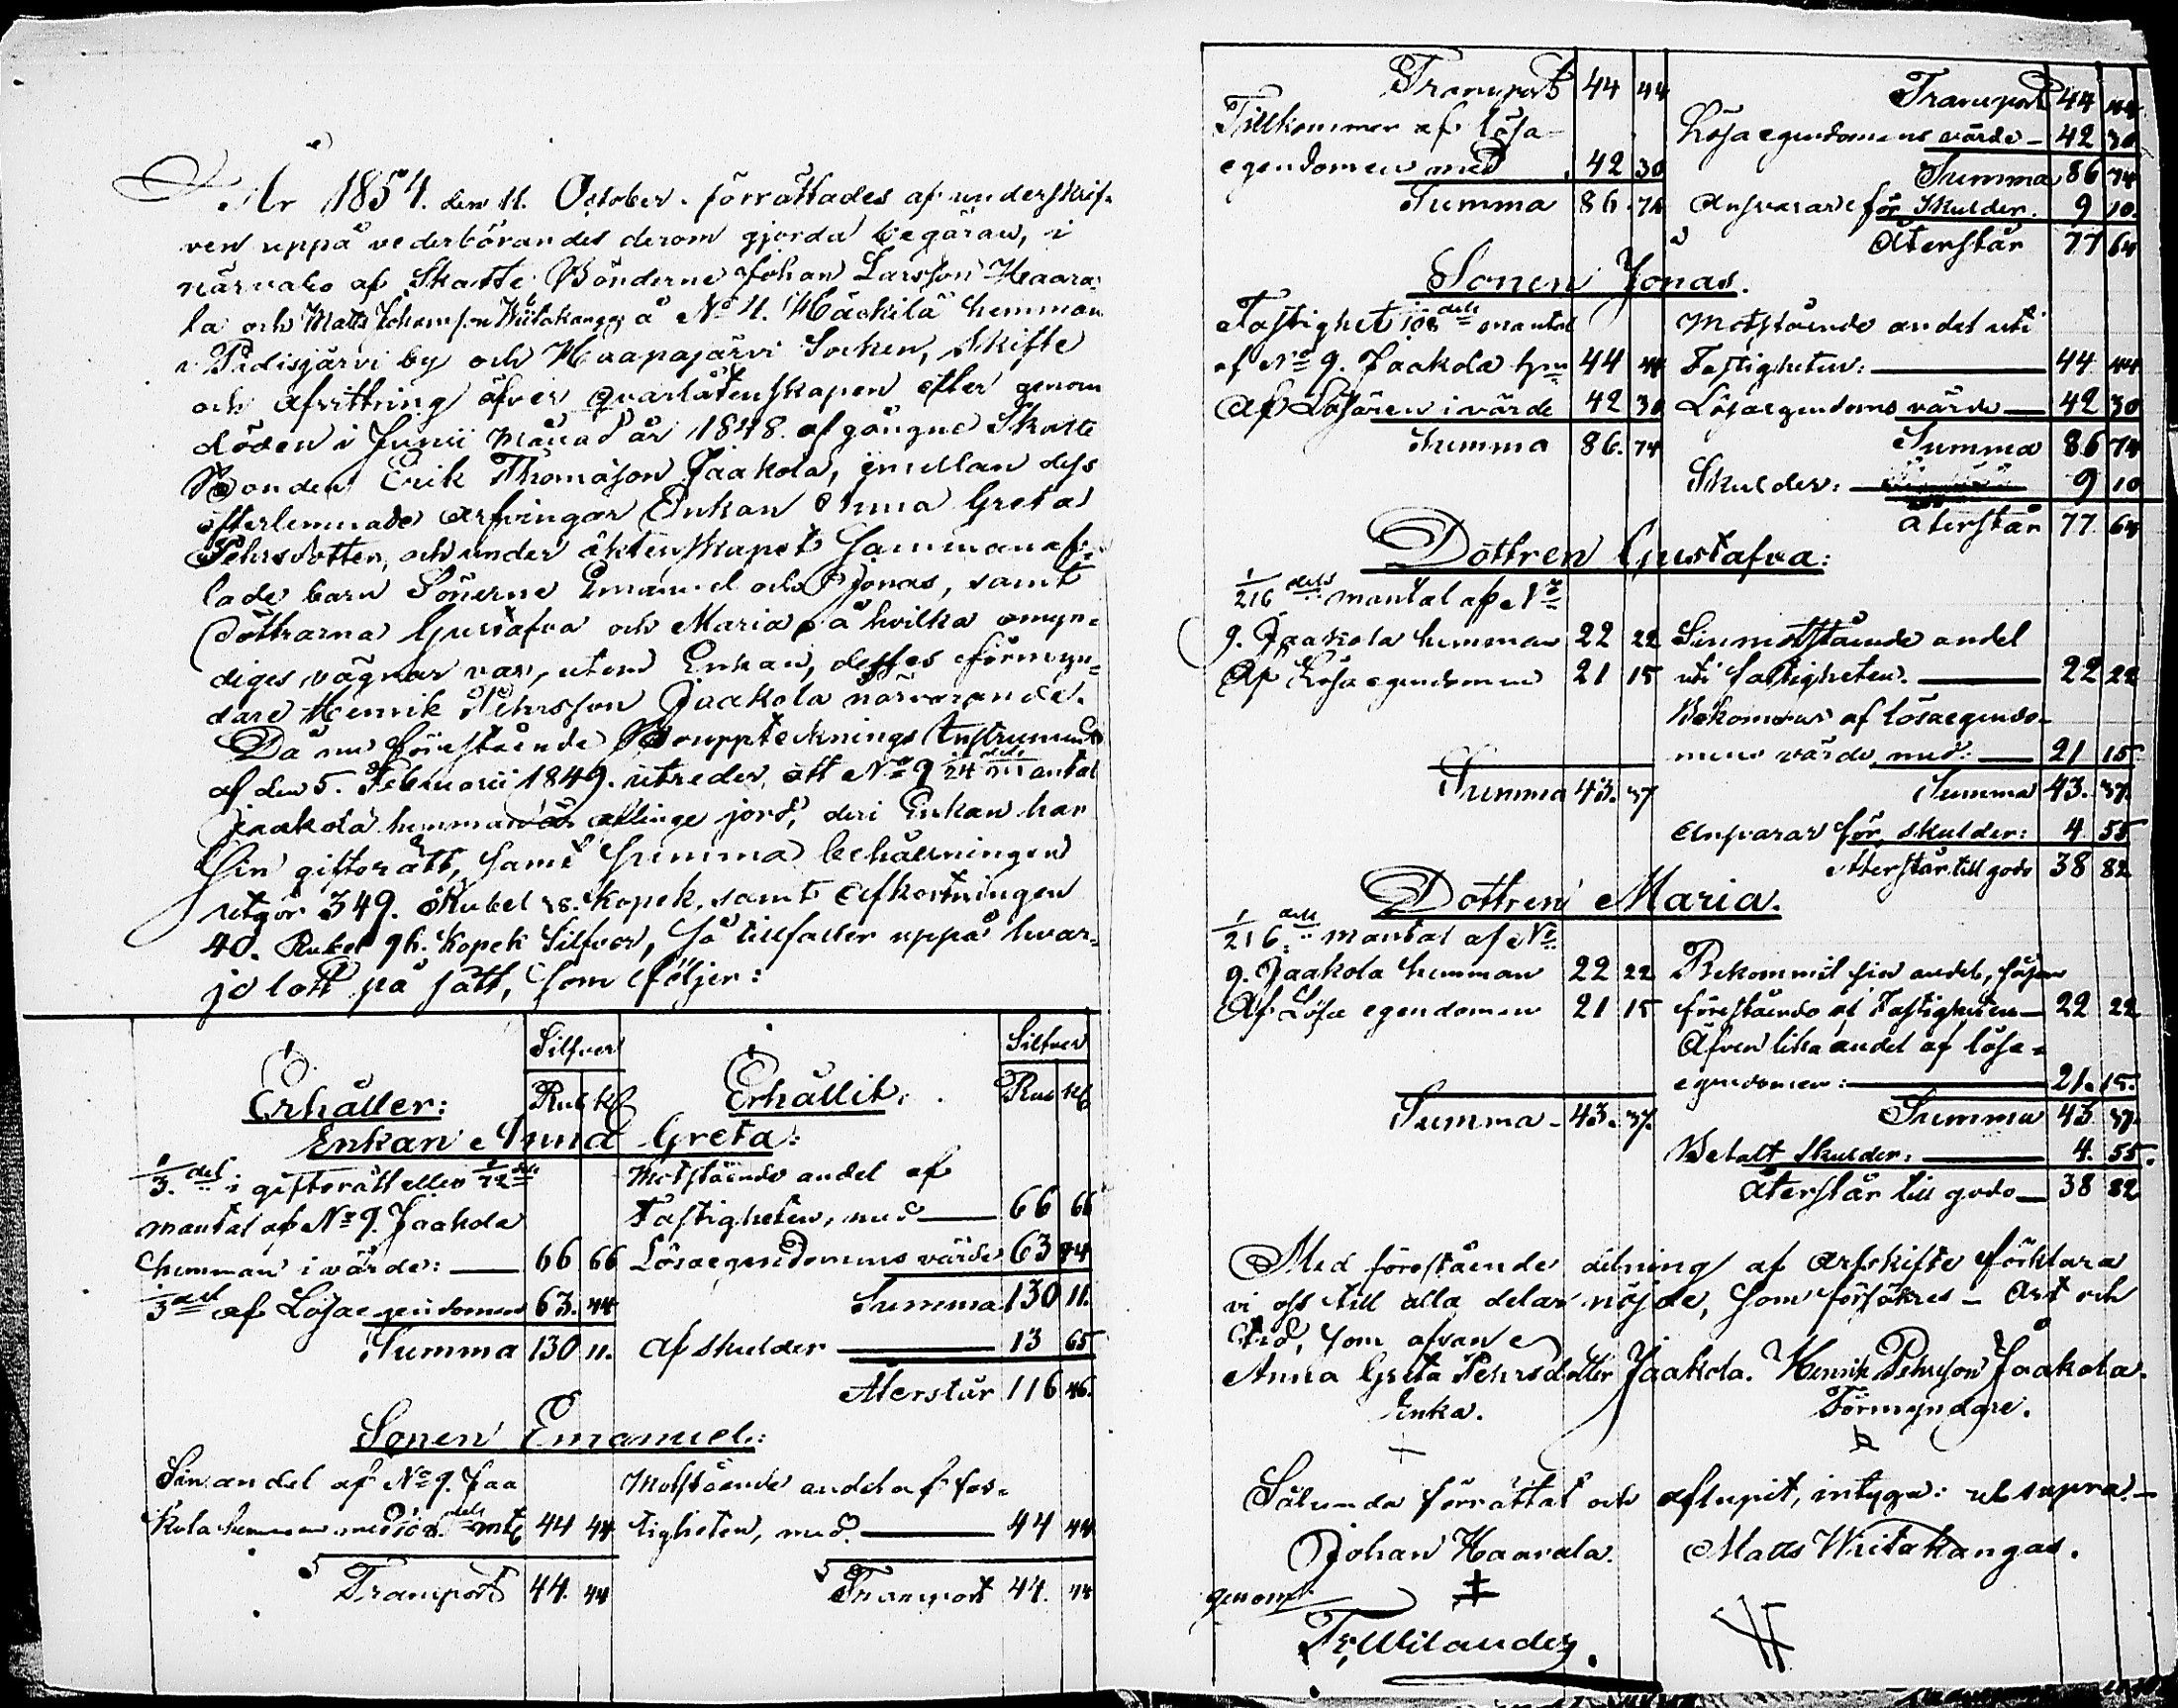 År 1854. den 11. October. förrättades af underskrif-
ven uppå vederbörandes derom gjorda begäran, i
närvaro af Skatte Bönderne Johan Larsson Haara-
la och Matts Johansson Wiitakangas å No 4. Mäckilä hemman
i Pidisjärvi by och Haapajärvi Socken, Skifte
och afvittring öfver qvarlåtenskapen efter genom
döden i Junii månad år 1848. afgångne Skatte
Bonden Erik Thomasson Jaakola, emellan dess
efterlemnade arfvingar Enkan Anna Greta
Pehrsdotter, och under äktenskapet samman af-
lade barn Sönerne Emanuel och Jonas, samt
döttrarna Gustafva och Maria på hvilka omyn-
diges vägnar var, utom Enkan, desses förmyn-
dare Henrik Pehrsson Jaakola närvarande.
Då nu förestående Bouppteckningsinstrument
af den 5. Februarii 1849. utreder, att No 9 1/24 dels mantal
Jaakola hemman är aflinge jord, deri Enkan har
sin giftorätt, samt summa behållningen
utgör 349. Rubel 18. Kopek, samt afkortningen
40. Rubel 96. Kopek Silfver, så tillfaller uppå hvar-
je lott på sätt, som följer:
Silfver Silfver
Erhåller: Rub kop Erhållit. Rub kop
Enkan Anna Greta:
1/3. del i giftorätt eller 1/72 dels Motstående andel af
mantal af No 9. Jaakola Fastigheten, med 66 66
hemman i värde: 66 66 Lösaegendomens värde 63 44
1/3 del af Lösaegendomen 63. 44 Summa 130 11.
Summa 130 11. Af skulder 13 65
Återstår 116 46.
Sonen Emanuel:
Sin andel af No 9. Jaa Motstående andel af fas-
kola hemman med 108. dels mtl 44 44 tigheten, med 44 44
Transport 44. 44 Transport 44. 44
Transport 44 44 Transport 44 44
Tillkommer af lösa Lösaegendomens värde 42 30
egendomen med 42 30 Summa 86 74
Summa 86. 74 Ansvarar för Skulder. 9 10.
Återstår 77 64
Sonen Jonas.
Fastighet 108 dels mantal Motstående andel uti
af No 9. Jaakola hmn 44 44 Fastigheten: 44 44
Af Lösören i värde 42 30 Lösaegendoms värde 42 30
Summa 86. 74 Summa 86 74
Skulder: 9 10
återstår 77 64
Dottren Gustafva:
1/216 dels mantal af No
9. Jaakola hemman 22 22 Sin motstående andel
Af Lösaegendomen 21 15 uti fastigheten. 22 22
Bekommer af lösaegendo-
mens värde med: 21 15
Summa 43. 37 Summa 43. 37.
Ansvarar för skulder: 4 55
Återstår till godo 38 82
Dottren Maria.
1/216. dels mantal af No
9. Jaakola hemman 22 22 Bekommit sin andel, såsom
Af Lösa egendomen 21 15 förestående af Fastigheten 22 22
Äfven lika andel af lösa-
egendomen: 21. 15.
Summa 43. 37. Summa 43 37.
Betalt skulder: 4. 55.
Återstår till godo 38 82
Med förestående delning af arfskifte förklara
vi oss till alla delar nöjde, som försäkres Ort och
tid, som ofvan
Anna Greta Pehrsdotter Jaakola. Henrik Pehrsson Jaakola.
Enka. Förmyndare.
Sålunda förrättat och aflupit, intyga: ut supra.
Johan Haarala. Matts Wiitakangas.
genom
Fr, Wilander.